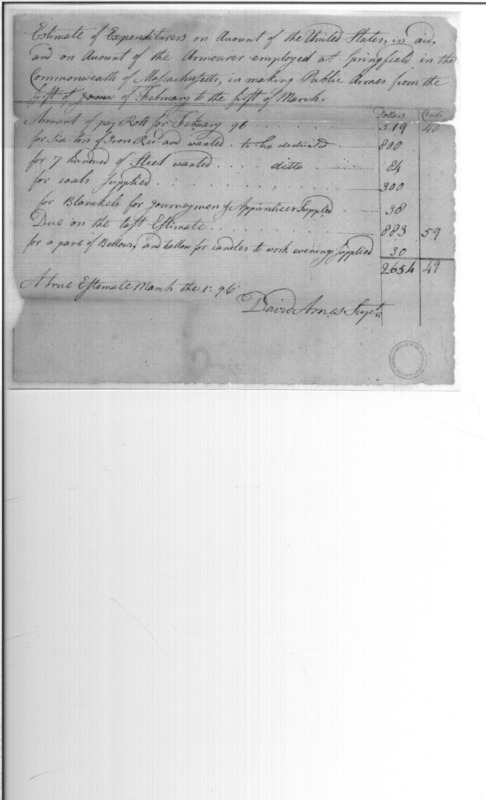 Estimate of Expenditurers on Acount of the United States, in aid,
and on Acount of the Armourer employed at Springfield in the
Commonwealth of Massachusetts, in making Public Armes from the
first of of February to the first of March.
Dolars Cents
Amount of pay Roll for February 96 519
for Six tons of Iron Rec'd and wanted . to be deducted 800
for 7 hundred of Steel wanted . . . ditto 84
for coals Supplied . . . . . . 300
for Blankets for Journeymen & Apprintices Supplied 38
Due on the last Estimate . . . . . 883 59
for a pare of Bellows, and tallow for candles to work evenings Supplied 30
2654
A true Estemate March the 1: 96
David Ames Supt.